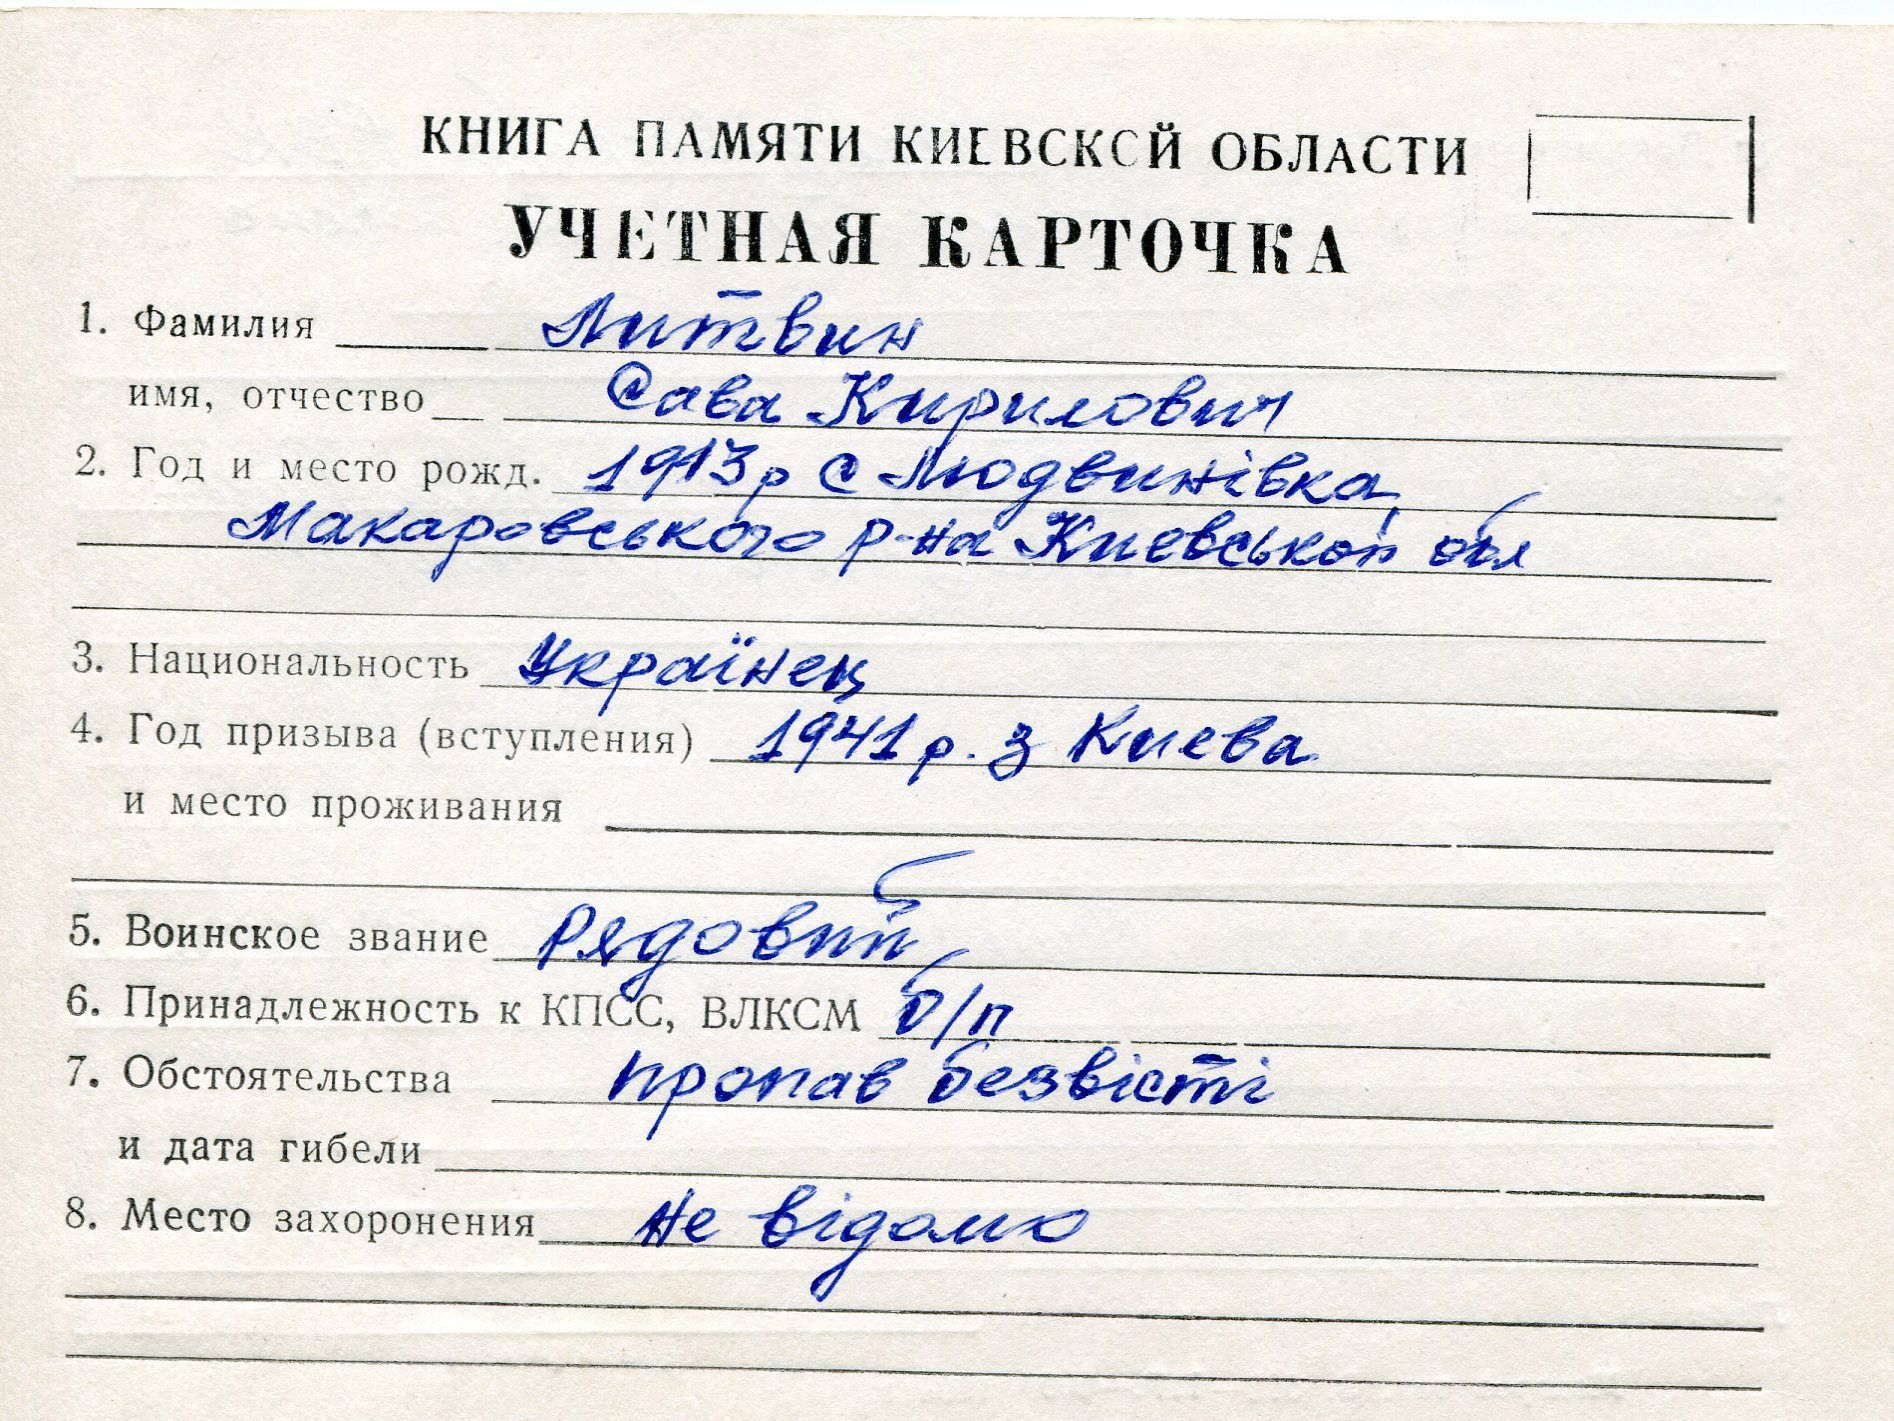 КНИГА ПАМЯТИ КИЕВСКОЙ ОБЛАСТИ
УЧЕТНАЯ КАРТОЧКА
1. Фамилия Литвин
имя, отчество Сава Кирилович
2. Год и место рожд. 1913р с Людвинівка,
Макаровського р-на Киевськой обл
3. Национальность Українец
4. Год призыва (вступления) 1941 р. з Киева
и место проживания
5. Воинское звание Рядовий
6. Принадлежность к КПСС, ВЛКСМ б/п
7. Обстоятельства пропав безвісті
и дата гибели
8. Место захоронения не відомо